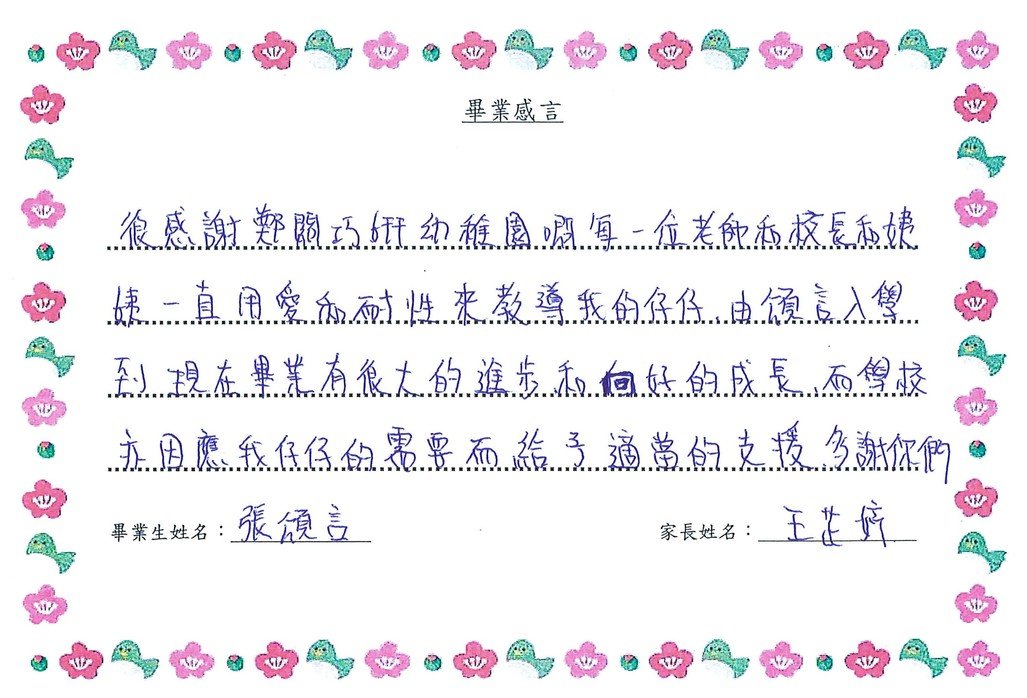 畢業感言
很感謝鄭關巧姸幼稚園嘅每一位老師和校長和姨
姨一直用愛和耐性來教導我的仔仔,由頌言入學
到現在畢業有很大的進步和向好的成長,而學校
亦因應我仔仔的需要而給予適當的支援,多謝你們
畢業生姓名：張頌言
家長姓名：王芷婷